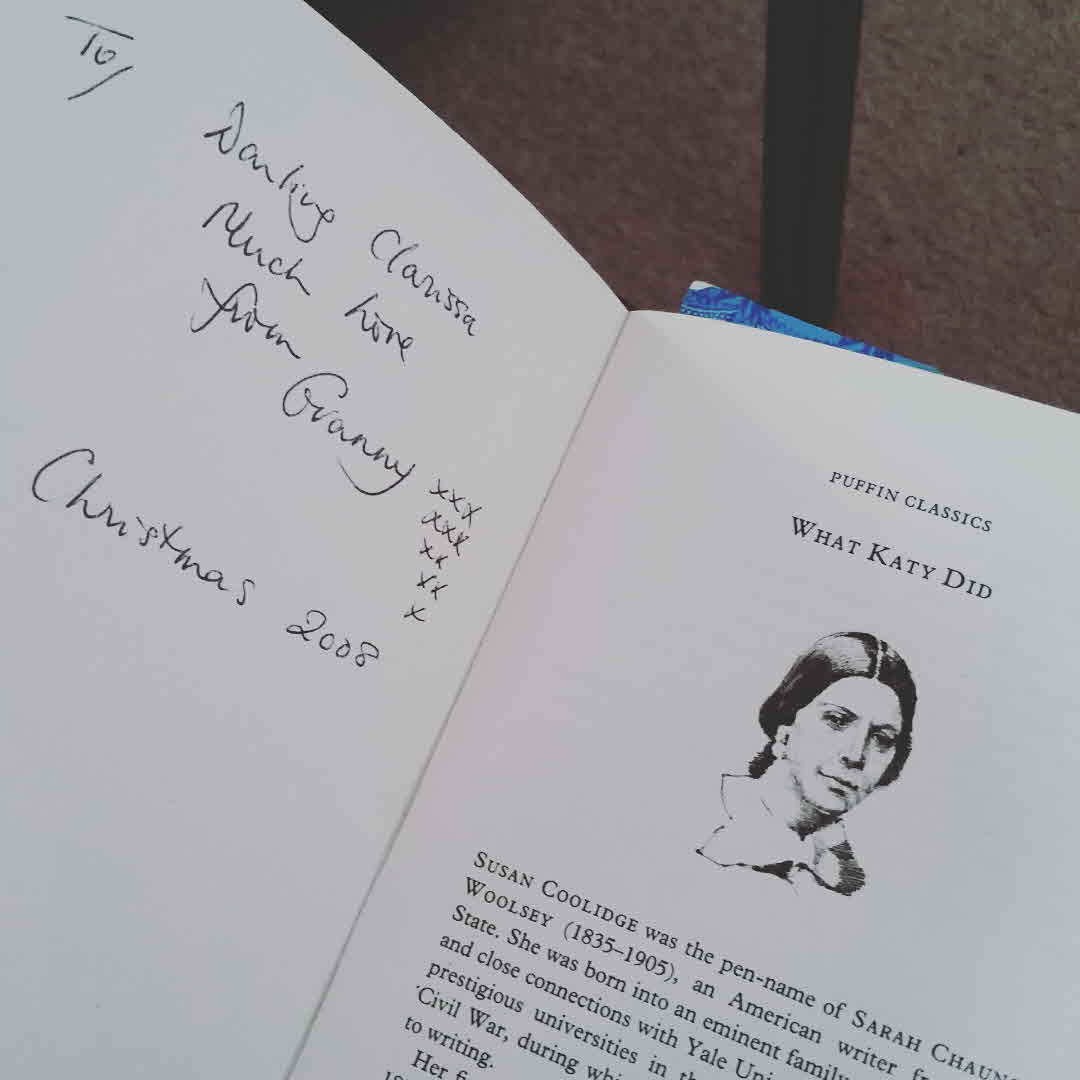 To,
Darling Clarissa
Much love
from
Granny xxx
xxx
xx
xx
x
Christmas 2008
PUFFIN CLASSICS
WHAT KATY DID
SUSAN COOLIDGE was the pen-name of SARAH CHAUN
WOOLSEY (1835–1905), an American writer
State. She was born into an eminent family
and close connections with Yale
prestigious universities in
Civil War, during
to writing.
Her